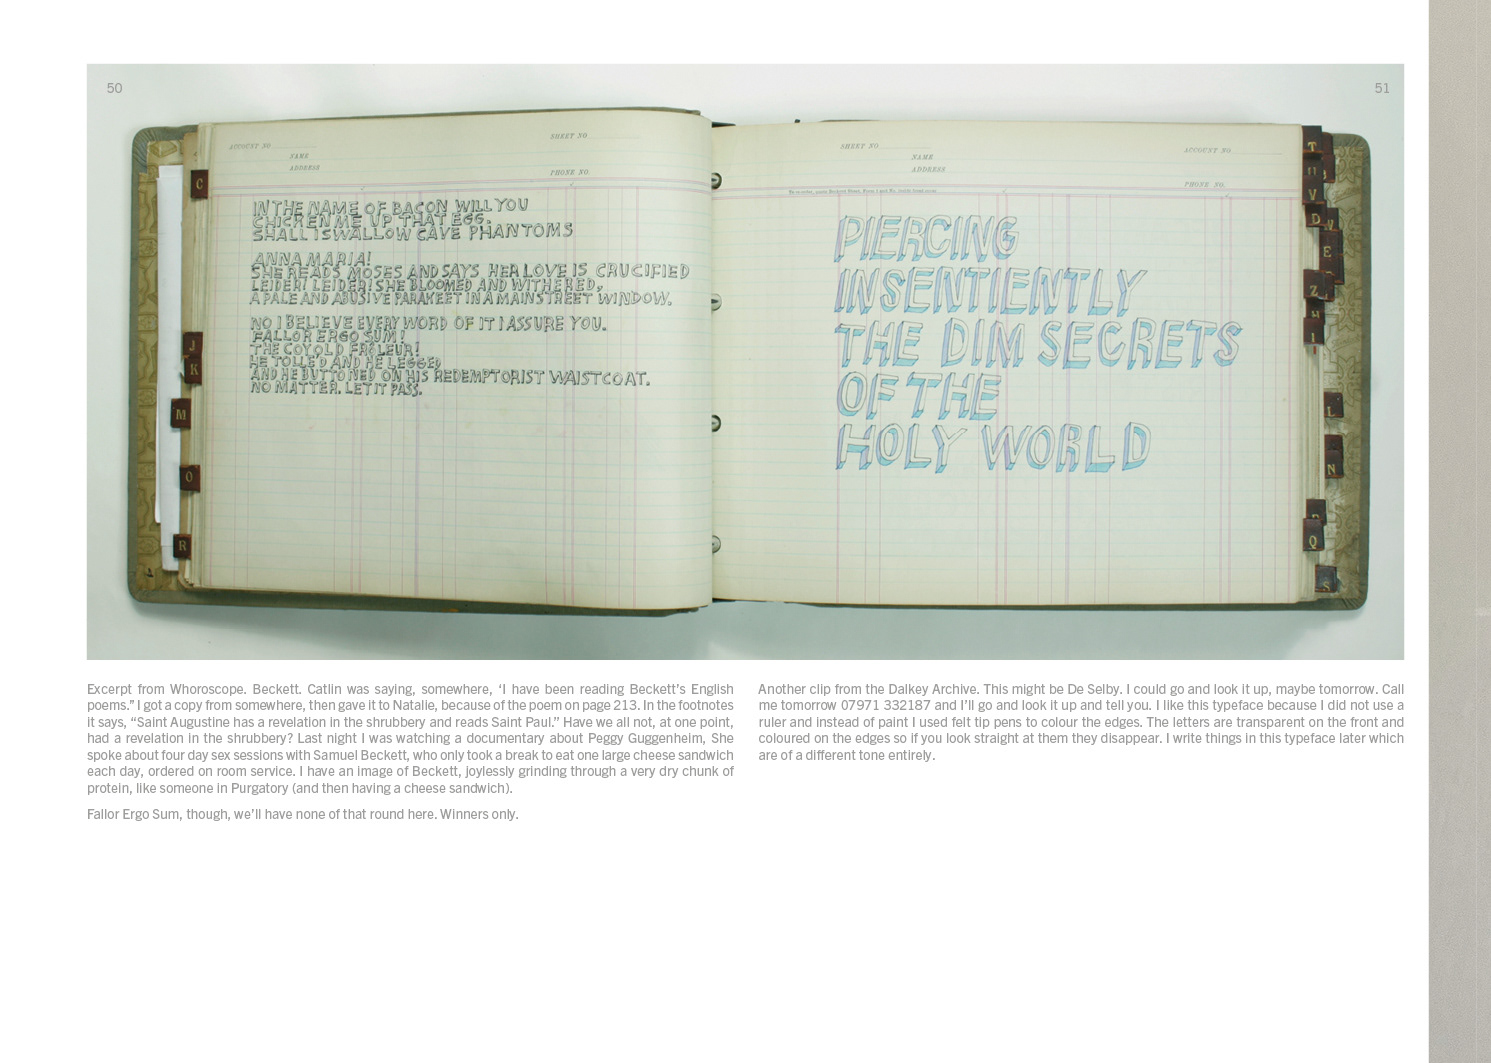 50
51
ACCOUNT NO
SHEET NO
NAME
ADDRESS
PHONE NO.
C
J
K
M
O
R
IN THE NAME OF BACON WILL YOU
CHICKEN ME UP THAT EGG.
SHALL I SWALLOW CAVE PHANTOMS
ANNA MARIA!
SHE READS MOSES AND SAYS HER LOVE IS CRUCIFIED
LEIDER! LEIDER! SHE BLOOMED AND WITHERED,
A PALE AND ABUSIVE PARAKEET IN A MAINSTREET WINDOW.
NO I BELIEVE EVERY WORD OF IT I ASSURE YOU.
FALLOR ERGO SUM!
THE COY OLD FRÔLEUR!
HE TOLLE'D AND HE LEGGED
AND HE BUTTONED ON HIS REDEMPTORIST WAISTCOAT.
NO MATTER. LET IT PASS.
SHEET NO
ACCOUNT NO
NAME
ADDRESS
PHONE NO.
PIERCING
INSENTIENTLY
THE DIM SECRETS
OF THE
HOLY WORLD
T
U
V
D
W
E
Z
H
I
L
N
P
Q
Excerpt from Whoroscope. Beckett. Catlin was saying, somewhere, ‘I have been reading Beckett’s English
poems.” I got a copy from somewhere, then gave it to Natalie, because of the poem on page 213. In the footnotes
it says, “Saint Augustine has a revelation in the shrubbery and reads Saint Paul.” Have we all not, at one point,
had a revelation in the shrubbery? Last night I was watching a documentary about Peggy Guggenheim, She
spoke about four day sex sessions with Samuel Beckett, who only took a break to eat one large cheese sandwich
each day, ordered on room service. I have an image of Beckett, joylessly grinding through a very dry chunk of
protein, like someone in Purgatory (and then having a cheese sandwich).
Fallor Ergo Sum, though, we’ll have none of that round here. Winners only.
Another clip from the Dalkey Archive. This might be De Selby. I could go and look it up, maybe tomorrow. Call
me tomorrow 07971 332187 and I’ll go and look it up and tell you. I like this typeface because I did not use a
ruler and instead of paint I used felt tip pens to colour the edges. The letters are transparent on the front and
coloured on the edges so if you look straight at them they disappear. I write things in this typeface later which
are of a different tone entirely.